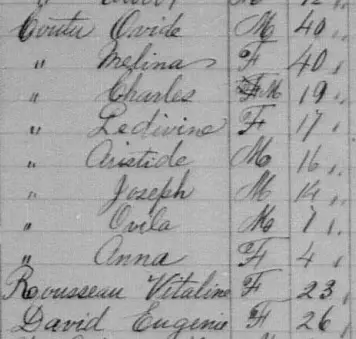 M 12 "
Coutu Ovide M 40 "
" Melina F 40 "
" Charles F M 19 "
" Ledivine F 17 "
" Aristide M 16 "
" Joseph M 14 "
" Ovila M 7 "
" Anna F 4 "
Rousseau Vitaline F 23 "
David Eugenie F 26 "